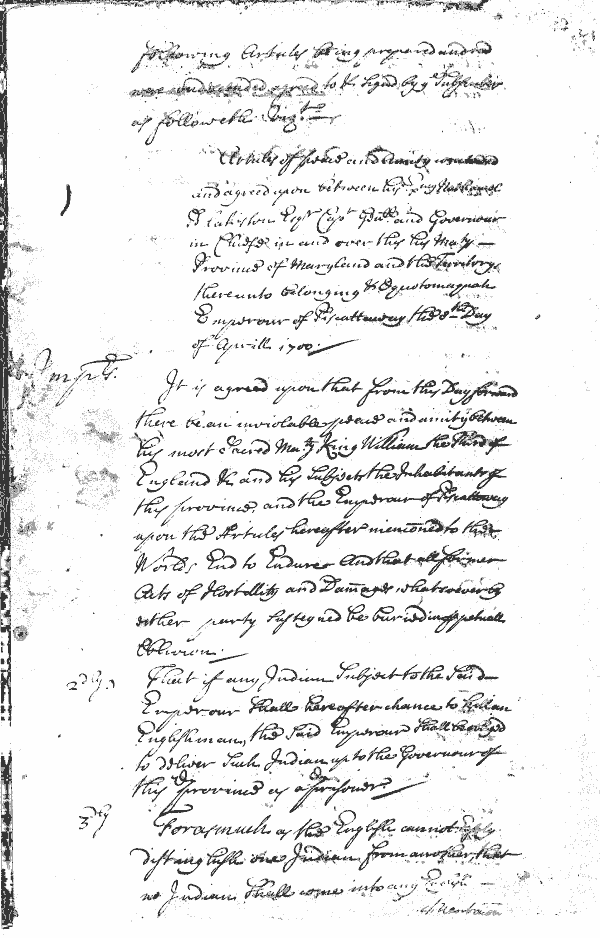 following Articles being prepared and read
were and agreed to & signed by ye Subscriber
as followeth Vizt
Articles of peace and amity
and agreed upon between his Exy Nathaniel
Blakiston Esqr Capt Genll and Governour
in Cheife in and over this his Maty
Province of Maryland and the Territorys
thereunto belonging & Equotomaquah
Emperour of Piscattaway the 8th Day
of Aprill 1700.
Imprs.
It is agreed upon that from this Day forward
there be an inviolable peace and amity between
his most Sacred Maty King William the Third of
England & and his Subjects the Inhabitants of
this province and the Emperour of Piscattaway
upon the Articles hereafter menconed to the
Worlds End to Endure And that all former
Acts of Hostillity and Damages whatsoever by
either party Susteyned be buried in ppetuall
Oblivion.
2dly.
That if any Indian Subject to the Said
Emperour Shall hereafter chance to kill an
Englishman, the Said Emperour Shall be obliged
to deliver Such Indian up to the Governour of
this Province as a Prisoner.
3dly
Forasmuch as the English cannot easily
distinguish one Indian from another, that
no Indian Shall come into any